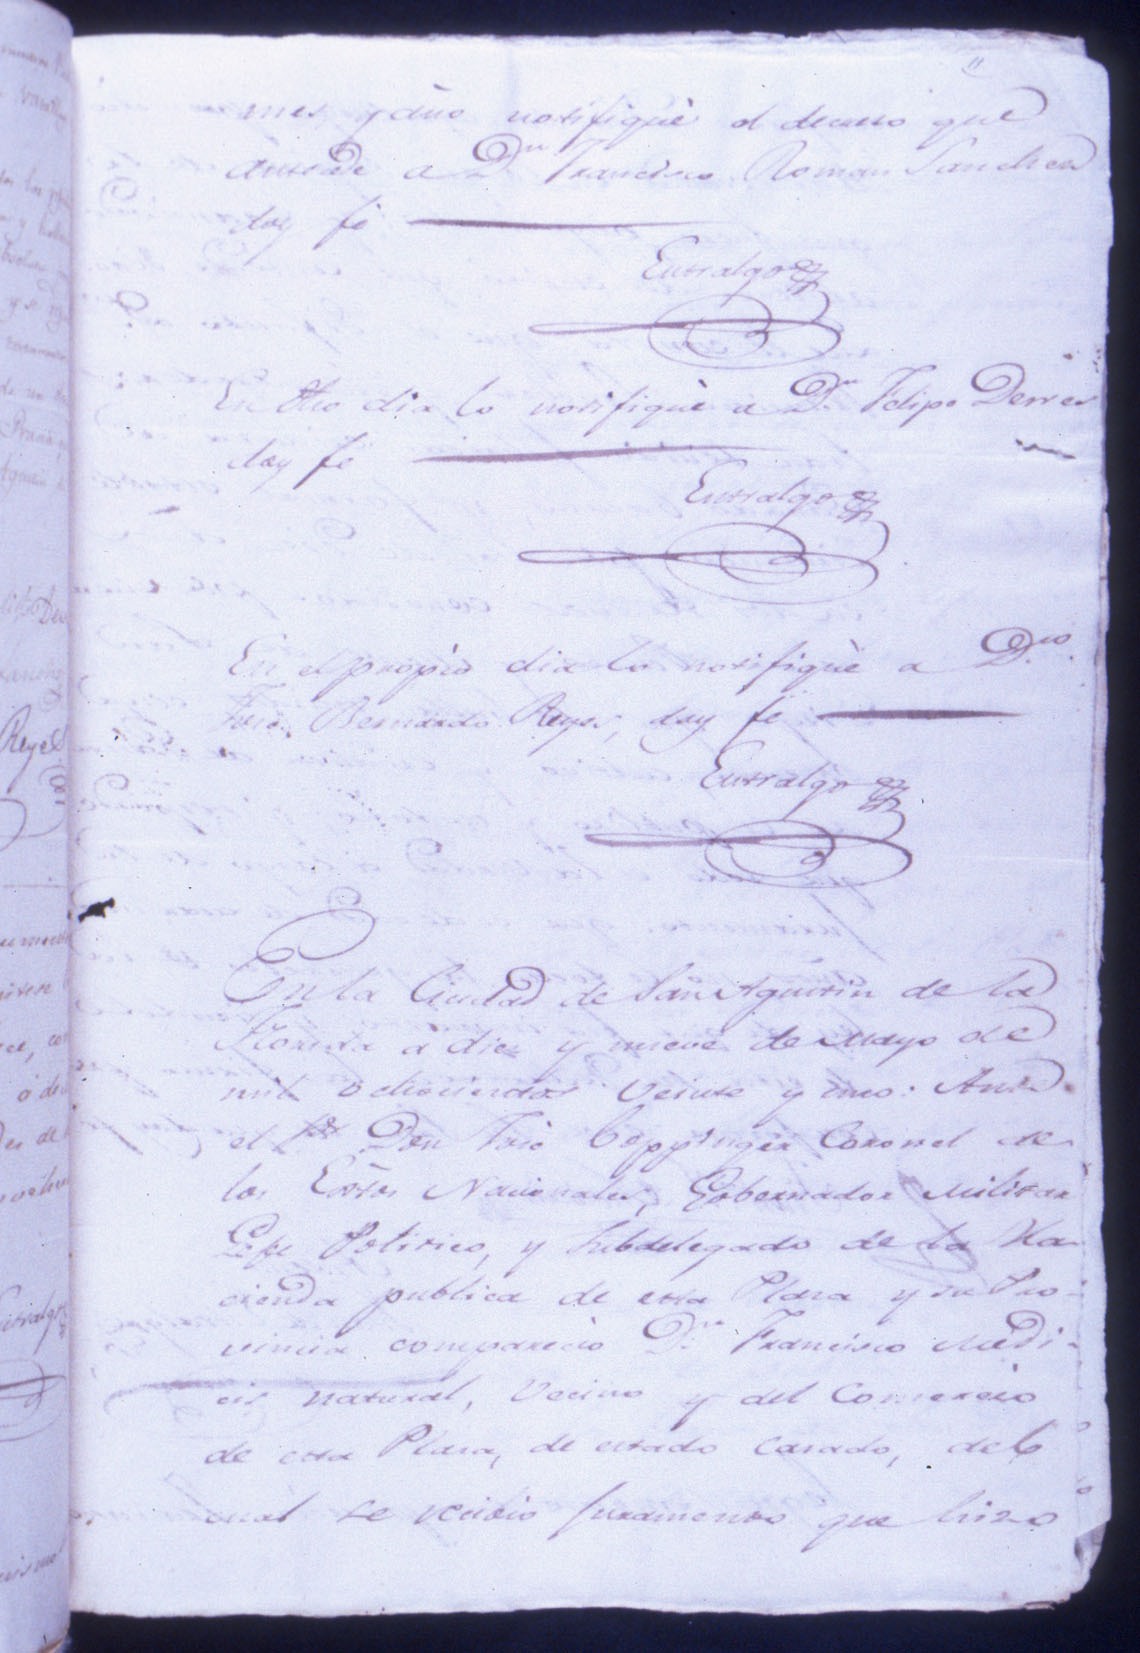 11
mes y año notifiquè el decreto que
antecede a Dn. Francisco Roman Sanchez
doy fè
Entralgo
En dho dia lo notifiquè a Dn. Felipe
doy fè
Entralgo
En el propio dia lo notifiquè a
Bernardo Reyes, doy fè
Entralgo
En la Ciudad de San Agustin de la
Florida a diez y nueve de Mayo de
mil ochocientos veinte y uno: Ante
el Sor Don José Coppinger Coronel de
los Extos Nacionales, Gobernador Militar
Gefe Politico, y Subdelegado de la Ha-
cienda publica de esta Plaza y su Pro-
vincia comparecio Dn. Francisco Medi-
cis natural, Vecino y del Comercio
de esta Plaza, de estado casado, del
cual se recibio juramento que hizo